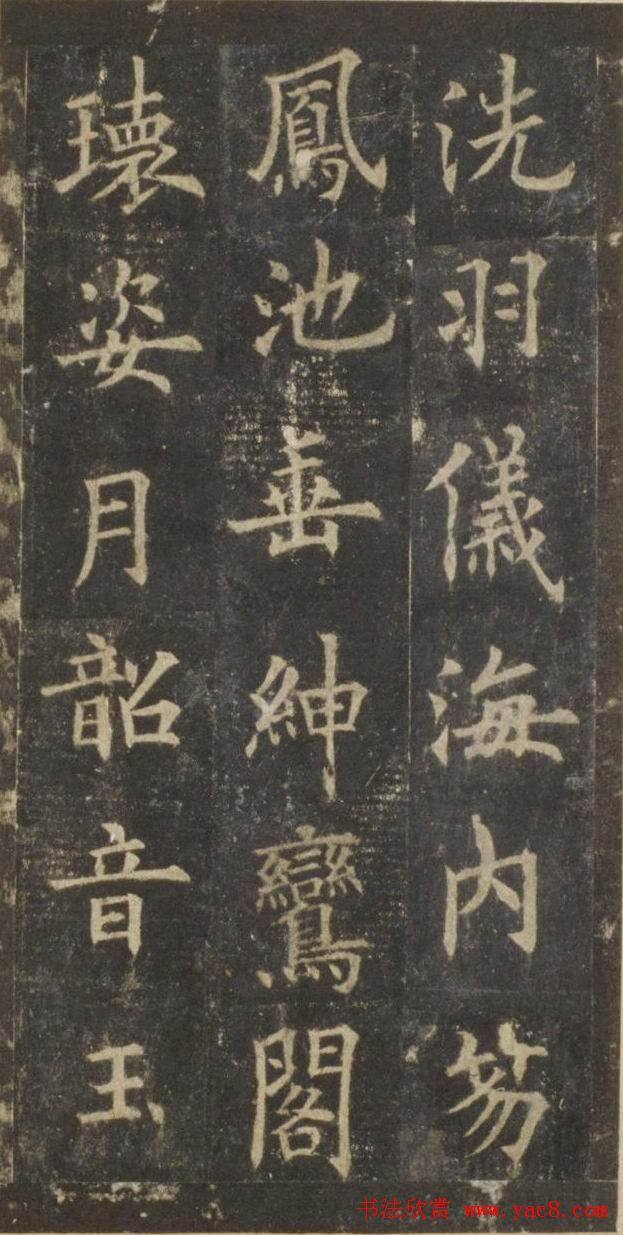 洗羽儀海内笏
鳳池垂紳鸞閣
瓌姿月韶音玉
书法欣赏 www.yac8.com